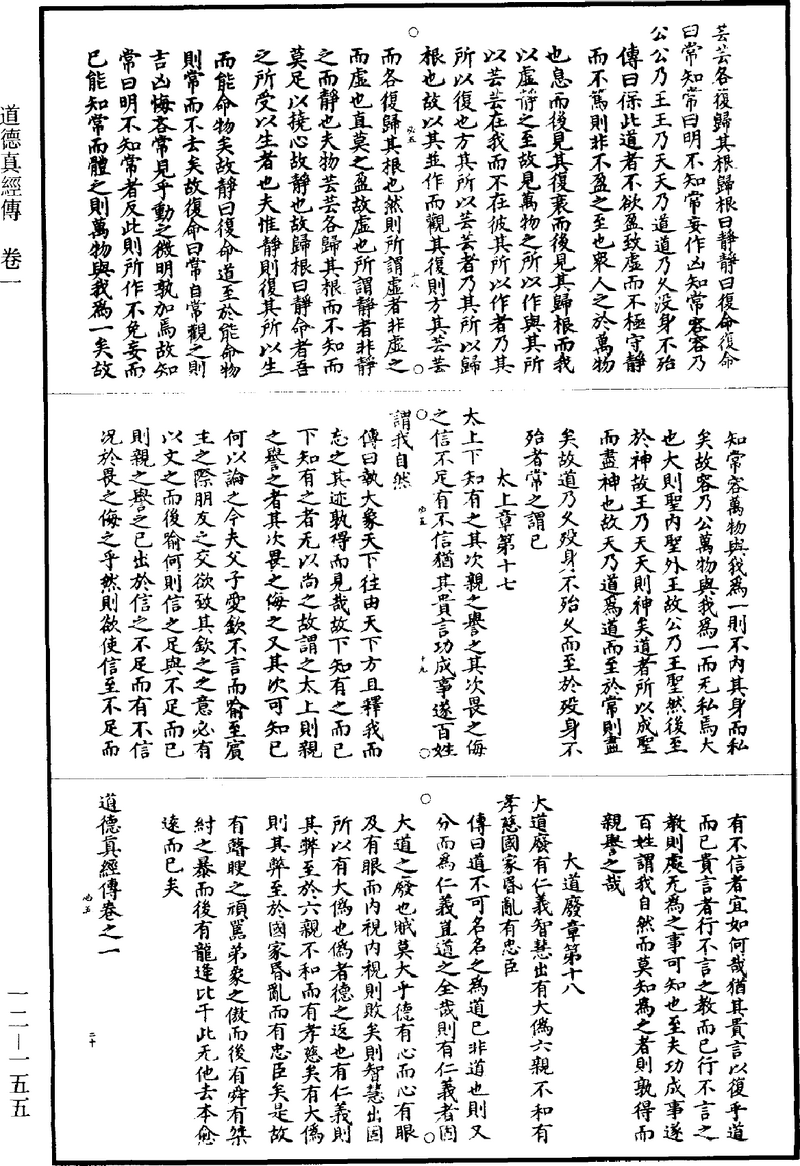 道德真經傳　卷一
芸芸各復歸其根歸根曰靜靜曰復命復命
曰常知常曰明不知常妄作凶知常容容乃
公公乃王王乃天天乃道道乃久没身不殆
傳曰保此道者不欲盈致虛而不極守靜
而不篤則非不盈之至也衆人之於萬物
也息而後見其復衰而後見其歸根而我
以虛靜之至故見萬物之所以作與其所
以芸芸在我而不在彼其所以作者乃其
所以復也方其所以芸芸者乃其所以歸
根也故以其並作而觀其復則方其芸芸
而各復歸其根也然則所謂虛者非虛之
而虛也直莫之盈故虛也所謂靜者非靜
之而靜也夫物芸芸各歸其根而不知而
莫足以撓心故靜也故歸根曰靜命者吾
之所受以生者也夫惟靜則復其所以生
而能命物矣故靜曰復命道至於能命物
則常而不去矣故復命曰常自常觀之則
吉凶悔吝常見乎動之微明孰加焉故知
常曰明不知常者反此則所作不免妄而
已能知常而體之則萬物與我爲一矣故
知常容萬物與我爲一則不內其身而私
矣故容乃公萬物與我爲一而无私焉大
也大則聖內聖外王故公乃王聖然後至
於神故王乃天天則神矣道者所以成聖
而盡神也故天乃道爲道而至於常則盡
矣故道乃久殁身不殆久而至於殁身不
殆者常之謂已
太上章第十七
太上下知有之其次親之譽之其次畏之侮
之信不足有不信猶其貴言功成事遂百姓
謂我自然
傳曰執大象天下往由天下方且釋我而
忘之其迹孰得而見哉故下知有之而已
下知有之者无以尚之故謂之太上則親
之譽之者其次畏之侮之又其次可知已
何以論之今夫父子愛欽不言而喻至賓
主之際朋友之交欲致其欽之之意必有
以文之而後喻何則信之足與不足而已
則親之譽之已出於信之不足而有不信
況於畏之侮之乎然則欲使信至不足而
有不信者宜如何哉猶其貴言以復乎道
而已貴言者行不言之教而已行不言之
教則處无爲之事可知也至夫功成事遂
百姓謂我自然而莫知爲之者則孰得而
親譽之哉
大道廢章第十八
大道廢有仁義智慧出有大偽六親不和有
孝慈國家昏亂有忠臣
傳曰道不可名名之爲道已非道也則又
分而爲仁義豈道之全哉則有仁義者固
大道之廢也賊莫大乎德有心而心有眼
及有眼而內視內視則敗矣則智慧出固
所以有大偽也偽者德之返也有仁義則
其弊至於六親不和而有孝慈矣有大偽
則其弊至於國家昏亂而有忠臣矣是故
有瞽瞍之頑嚚弟象之傲而後有舜有桀
紂之暴而後有龍逢比干此无他去本愈
遠而已矣
道德真經傳卷之一
必五
十八
必五
十九
必五
二十
一二—一五五